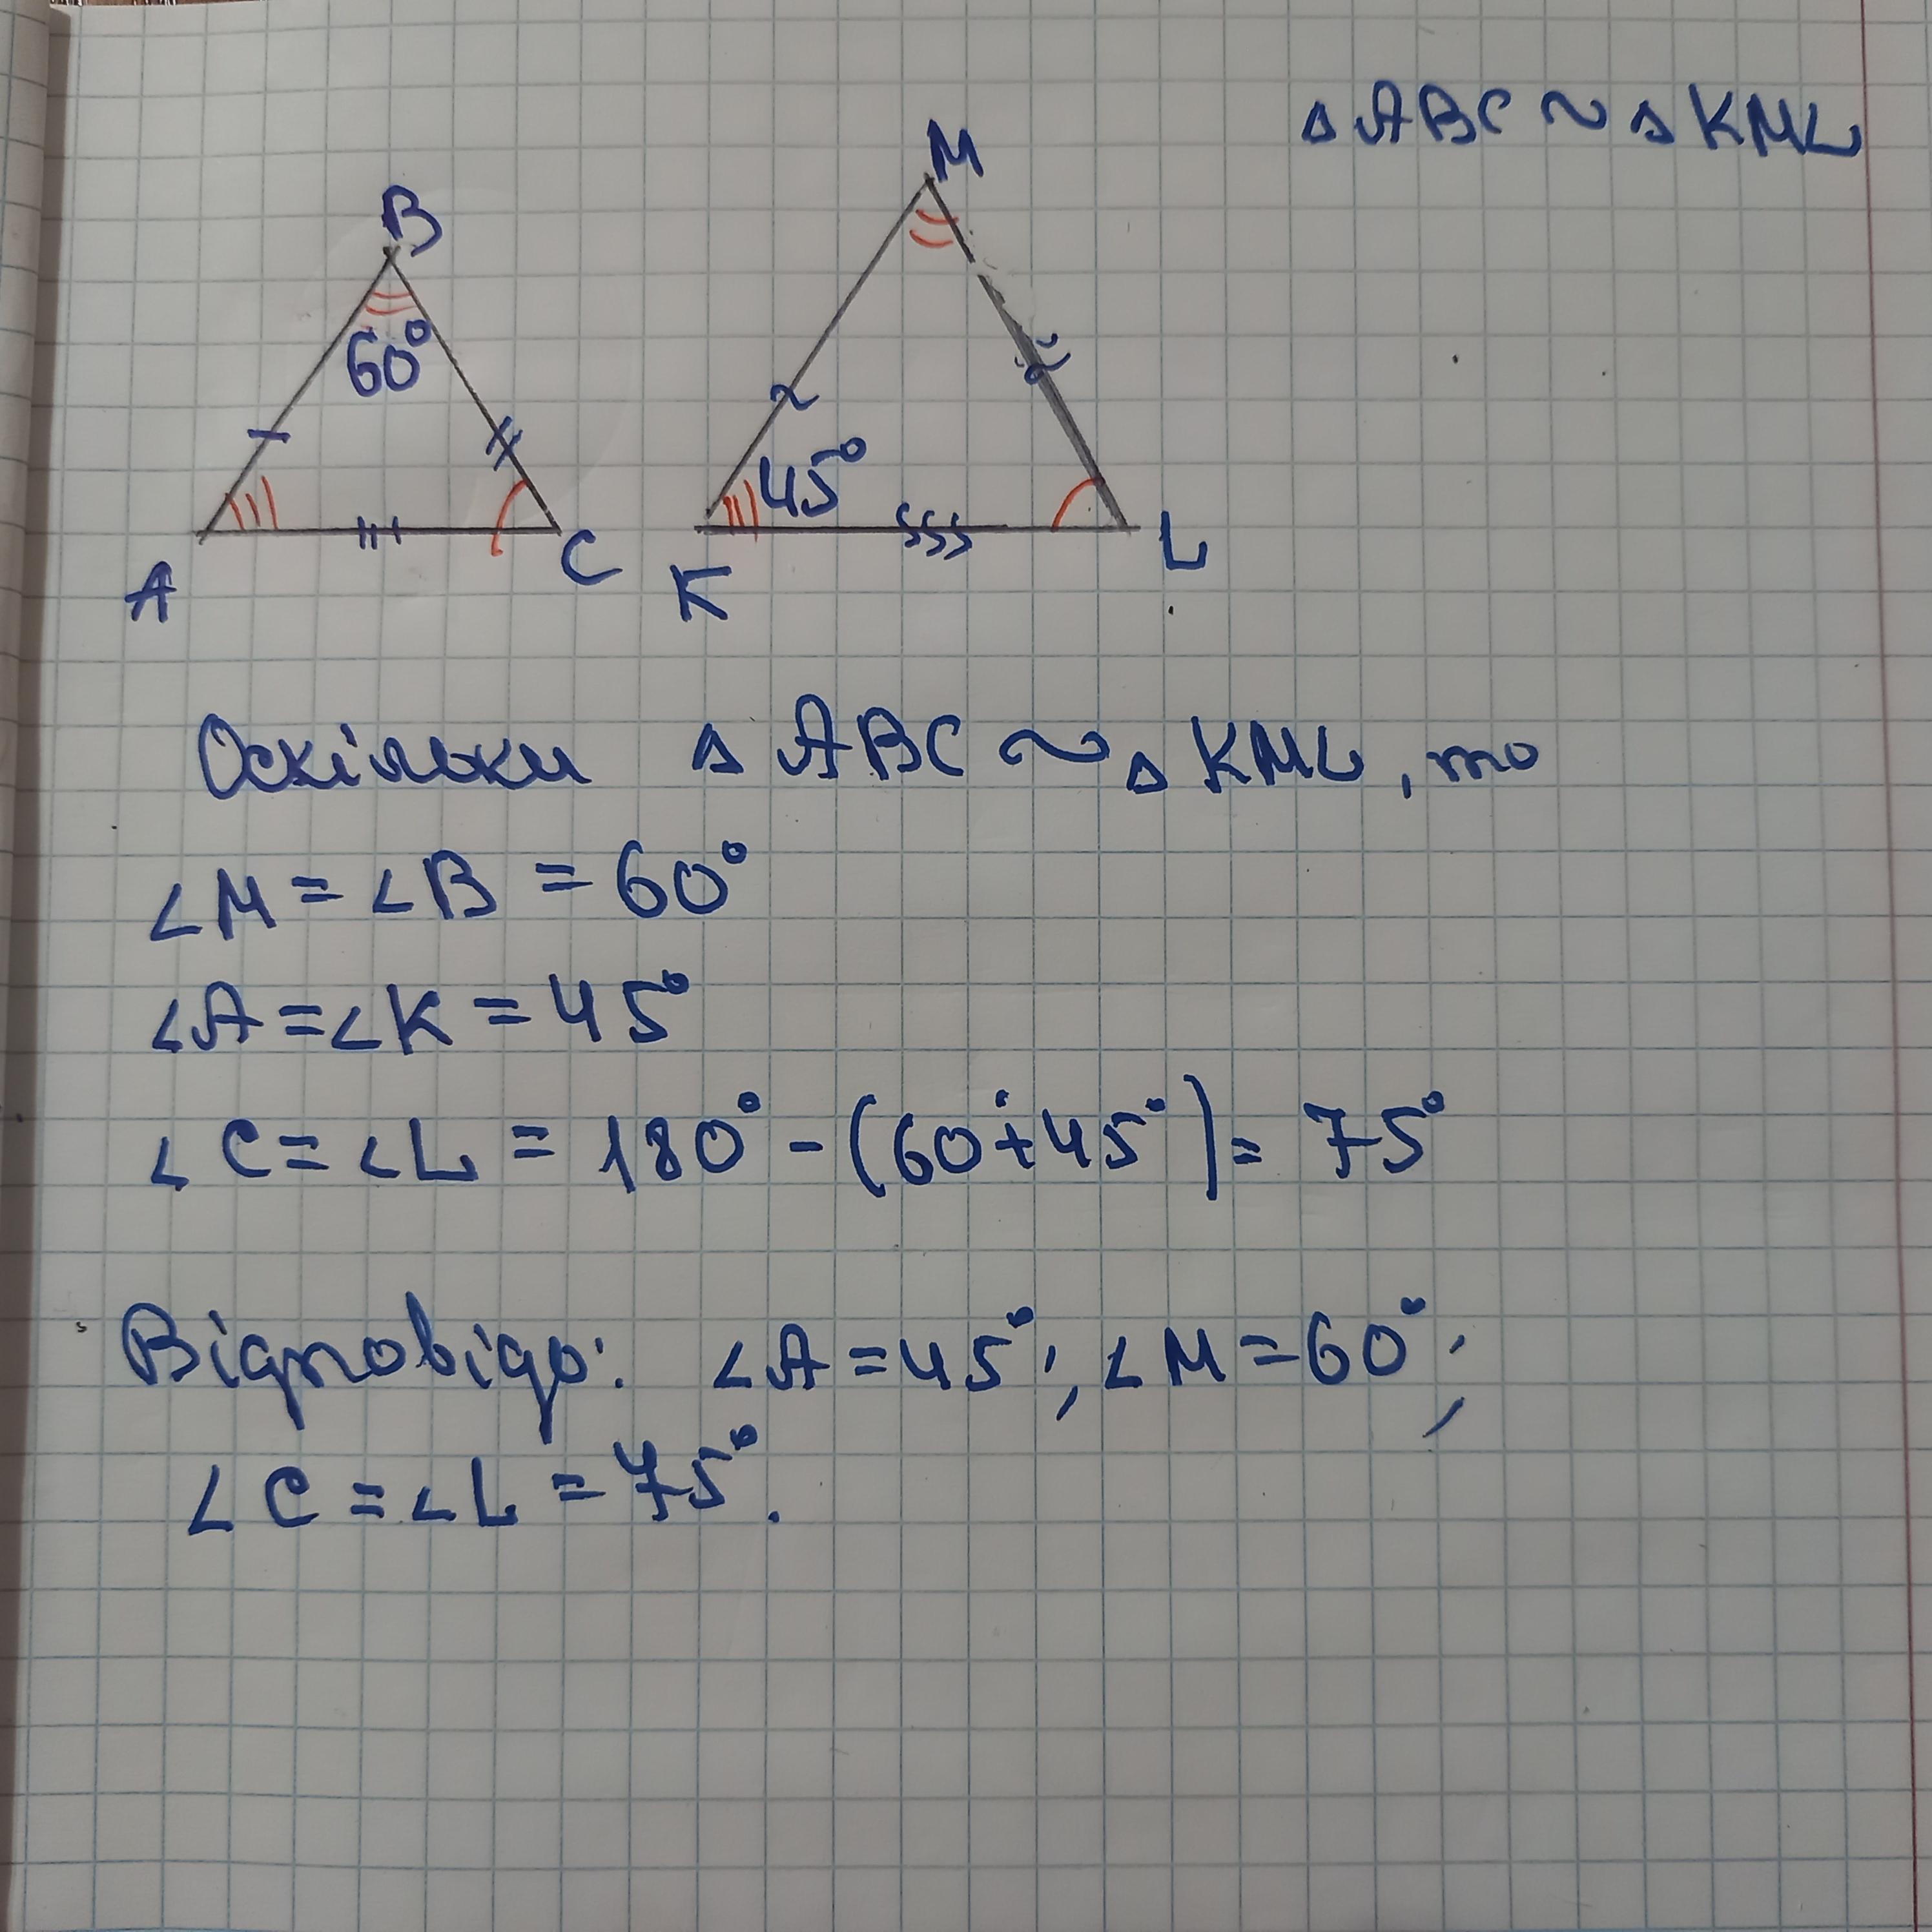 △ABC ~ △KML
B
M
60°
45°
A
C
K
L
Оскільки △ABC ~ △KML, то
∠M = ∠B = 60°
∠A = ∠K = 45°
∠C = ∠L = 180° - (60° + 45°) = 75°
Відповідь: ∠A = 45°; ∠M = 60°;
∠C = ∠L = 75°.